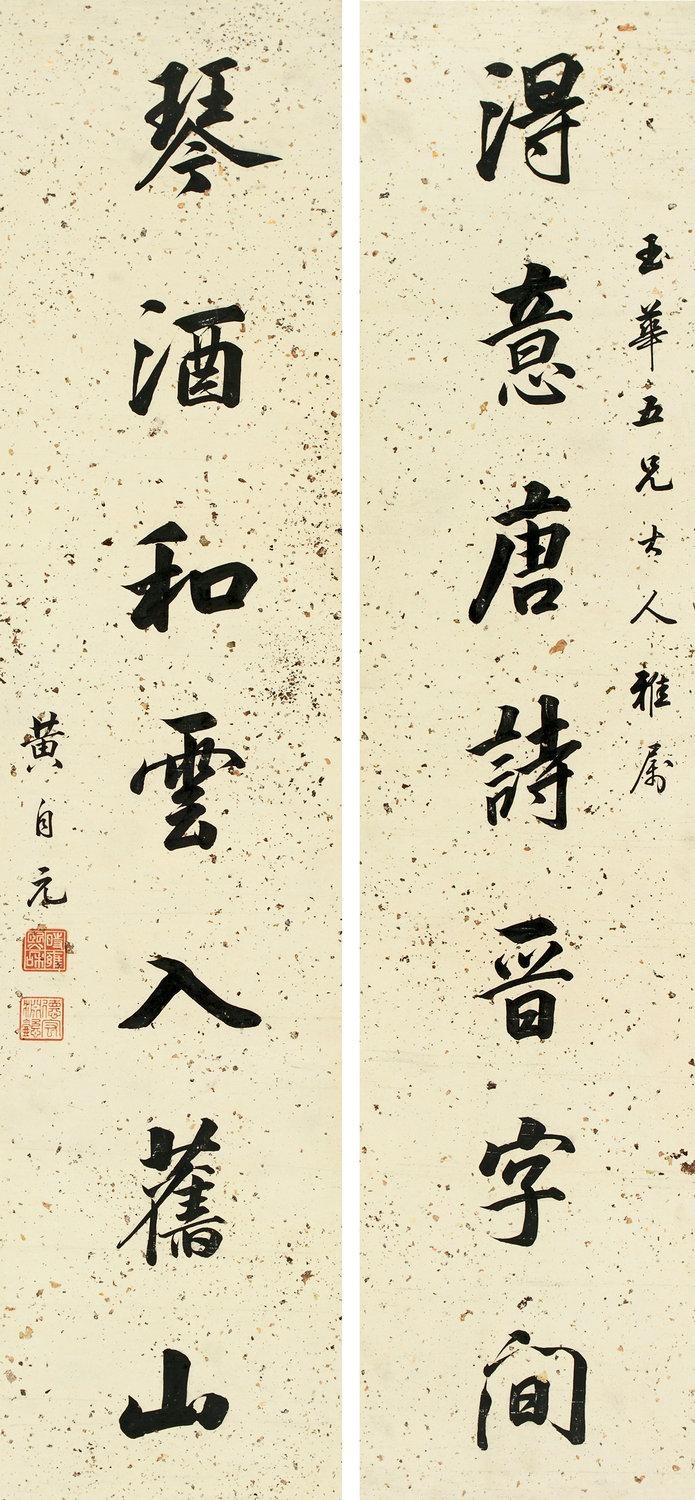 玉華五兄大人雅属
得意唐詩晉字間
琴酒和雲入舊山
黄自元